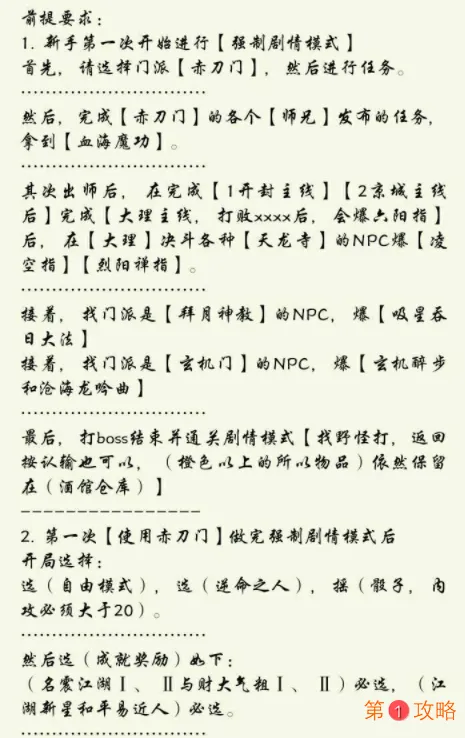 前提要求：
1. 新手第一次开始进行【强制剧情模式】
首先，请选择门派【赤刀门】，然后进行任务。
······························
然后，完成【赤刀门】的各个【师兄】发布的任务，
拿到【血海魔功】。
······························
其次出师后，在完成【1开封主线】【2京城主线
后】完成【大理主线，打败xxxx后，会爆六阳指】
后，在【大理】决斗各种【天龙寺】的NPC爆【凌
空指】【烈阳禅指】。
······························
接着，找门派是【拜月神教】的NPC，爆【吸星吞
日大法】
接着，找门派是【玄机门】的NPC，爆【玄机醉步
和沧海龙吟曲】
······························
最后，打boss结束并通关剧情模式【找野怪打，返回
按认输也可以，（橙色以上的所以物品）依然保留
在（酒馆仓库）】
-----------------
2. 第一次【使用赤刀门】做完强制剧情模式后
开局选择：
选（自由模式），选（逆命之人），摇（骰子，内
攻必须大于20）。
······························
然后选（成就奖励）如下：
（名震江湖Ⅰ、Ⅱ与财大气粗Ⅰ、Ⅱ）必选，（江
湖新星和平易近人）必选。
······························
第1攻略